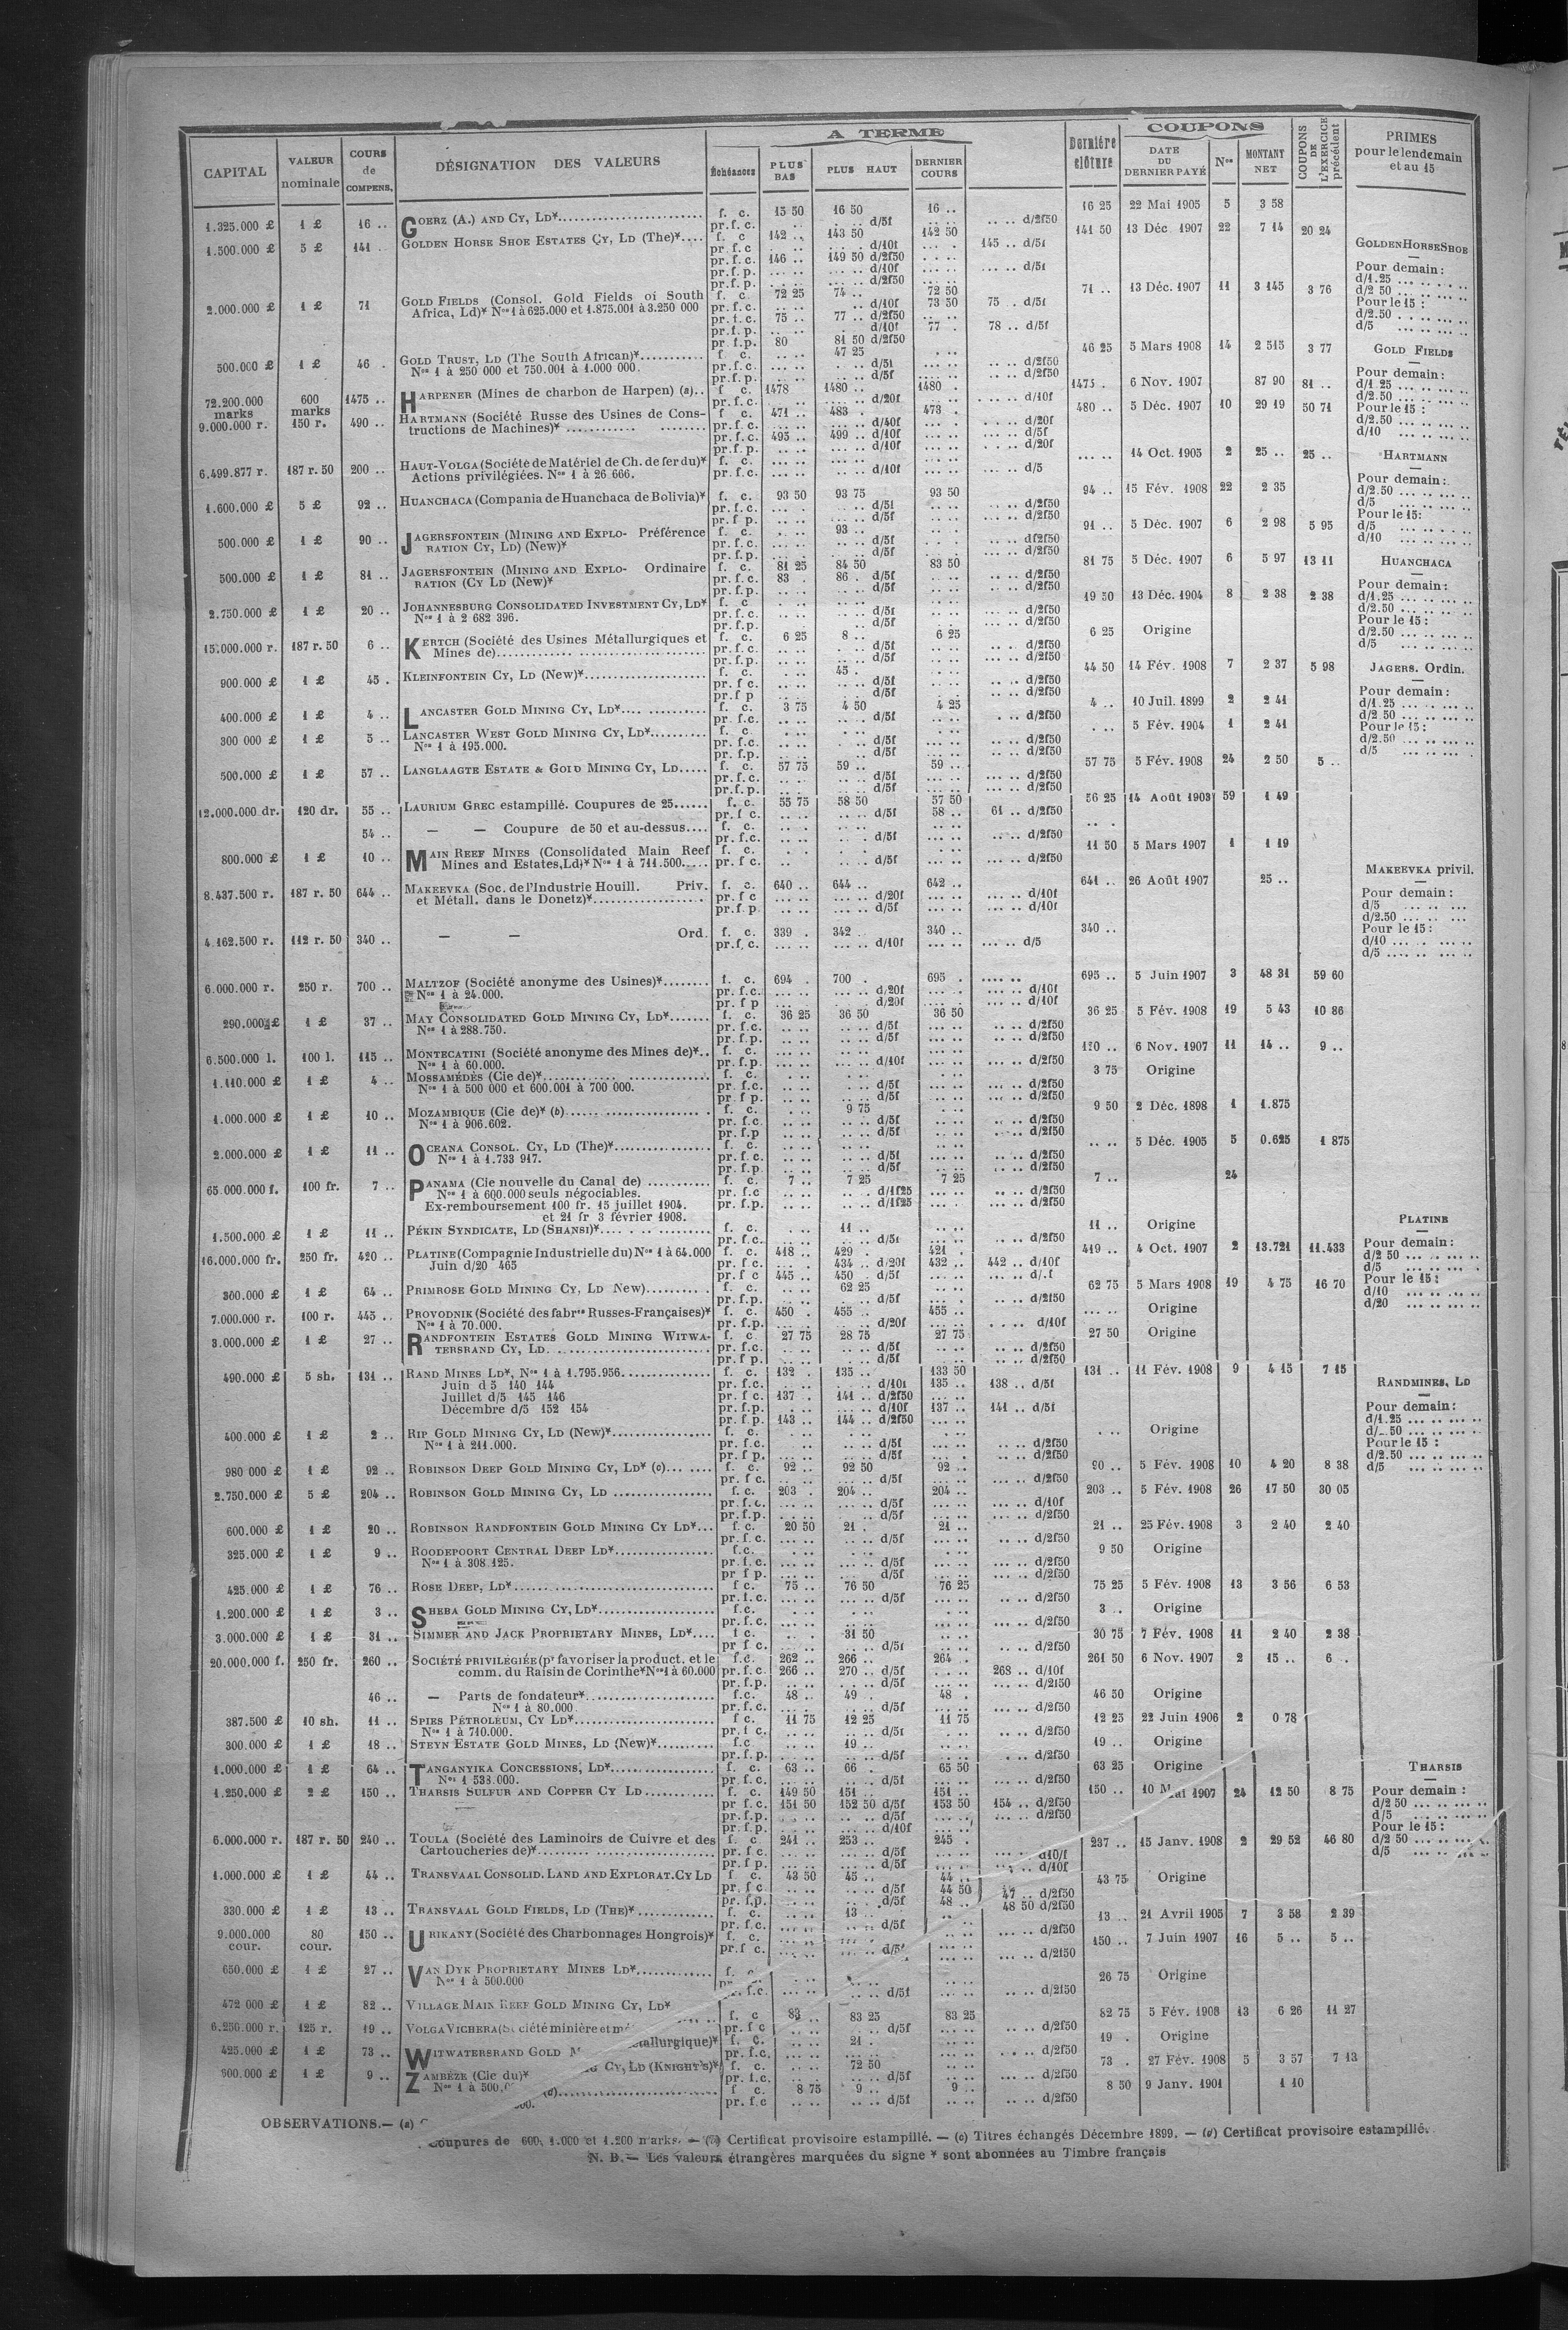 A TERME
COUPONS
CAPITAL | VALEUR nominale | COURS de COMPENS. | DÉSIGNATION DES VALEURS | Échéances | PLUS BAS | PLUS HAUT | DERNIER COURS | Dernière clôture | DATE DU DERNIER PAYÉ | Nos | MONTANT NET | COUPONS DE L'EXERCICE précédent | PRIMES pour le lendemain et au 15
1.325.000 £ 1 £ 16 .. GOERZ (A.) AND CY, LD* f. c. 15 50 16 50 16 .. 16 25 22 Mai 1905 5 3 58
pr. f. c. d/5f d/2f50
1.500.000 £ 5 £ 141 .. GOLDEN HORSE SHOE ESTATES CY, LD (The)* f. c 142 .. 143 50 142 50 141 50 13 Déc. 1907 22 7 14 20 24
pr. f. c d/10f 145 .. d/5f
pr. f. c. 146 .. 149 50 d/2f50
pr. f. p. d/10f d/5f
pr. f. p. d/2f50
2.000.000 £ 1 £ 71 GOLD FIELDS (Consol. Gold Fields of South f. c 72 25 74 .. 72 50 71 .. 13 Déc. 1907 11 3 145 3 76
Africa, Ld)* Nos 1 à 625.000 et 1.875.001 à 3.250 000 pr. f. c. d/10f 73 50 75 .. d/5f
pr. f. c. 75 .. 77 .. d/2f50
pr. f. p. d/10f 77 . 78 .. d/5f
pr. f. p. 80 81 50 d/2f50
500.000 £ 1 £ 46 . GOLD TRUST, LD (The South African)* f. c. 47 25 46 25 5 Mars 1908 14 2 515 3 77
Nos 1 à 250 000 et 750.001 à 1.000 000. pr. f. c. d/5f d/2f50
pr. f. p. d/5f d/2f50
72.200.000 marks 600 marks 1475 .. HARPENER (Mines de charbon de Harpen) (a).. f. c. 1478 1480 .. 1480 . 1475 . 6 Nov. 1907 87 90 81 ..
pr. f. c. d/20f d/10f
9.000.000 r. 150 r. 490 .. HARTMANN (Société Russe des Usines de Cons- f. c. 471 .. 483 . 473 . 480 .. 5 Déc. 1907 10 29 19 50 71
tructions de Machines)* pr. f. c. d/40f d/20f
pr. f. c. 495 .. 499 .. d/10f d/5f
pr. f. p. d/10f d/20f
6.499.877 r. 187 r. 50 200 .. HAUT-VOLGA (Société de Matériel de Ch. de fer du)* f. c. 14 Oct. 1905 2 25 .. 25 ..
Actions privilégiées. Nos 1 à 26 666. pr. f. c. d/10f d/5
1.600.000 £ 5 £ 92 .. HUANCHACA (Compania de Huanchaca de Bolivia)* f. c. 93 50 93 75 93 50 94 .. 15 Fév. 1908 22 2 35
pr. f. c. d/5f d/2f50
pr. f p. d/5f d/2f50
500.000 £ 1 £ 90 .. JAGERSFONTEIN (MINING AND EXPLO- Préférence f. c. 93 .. 91 .. 5 Déc. 1907 6 2 98 5 95
RATION CY, LD) (New)* pr. f. c. d/5f d/2f50
pr. f. p. d/5f d/2f50
500.000 £ 1 £ 81 .. JAGERSFONTEIN (MINING AND EXPLO- Ordinaire f. c. 81 25 84 50 83 50 81 75 5 Déc. 1907 6 5 97 13 11
RATION (CY LD (New)* pr. f. c. 83 . 86 . d/5f d/2f50
pr. f. p. d/5f d/2f50
2.750.000 £ 1 £ 20 .. JOHANNESBURG CONSOLIDATED INVESTMENT CY, LD* f. c. 19 50 13 Déc. 1904 8 2 38 2 38
Nos 1 à 2 682 396. pr. f. c. d/5f d/2f50
pr. f. p. d/5f d/2f50
15.000.000 r. 187 r. 50 6 .. KERTCH (Société des Usines Métallurgiques et f. c. 6 25 8 .. 6 25 6 25 Origine
Mines de) pr. f. c. d/5f d/2f50
pr. f. p. d/5f d/2f50
900.000 £ 1 £ 45 . KLEINFONTEIN CY, LD (New)* f. c. 45 . 44 50 14 Fév. 1908 7 2 37 5 98
pr. f c. d/5f d/2f50
pr. f p d/5f d/2f50
400.000 £ 1 £ 4 .. LANCASTER GOLD MINING CY, LD* f. c. 3 75 4 50 4 25 4 .. 10 Juil. 1899 2 2 41
pr. f. c. d/5f d/2f50
300 000 £ 1 £ 5 .. LANCASTER WEST GOLD MINING CY, LD* f. c. 5 Fév. 1904 1 2 41
Nos 1 à 195.000. pr. f. c. d/5f d/2f50
pr. f. p. d/5f d/2f50
500.000 £ 1 £ 57 .. LANGLAAGTE ESTATE & GOLD MINING CY, LD f. c. 57 75 59 .. 59 .. 57 75 5 Fév. 1908 24 2 50 5 ..
pr. f. c. d/5f d/2f50
pr. f. p. d/5f d/2f50
12.000.000 dr. 120 dr. 55 .. LAURIUM GREC estampillé. Coupures de 25 f. c. 55 75 58 50 57 50 56 25 14 Août 1903 59 1 49
pr. f c. d/5f 58 .. 61 .. d/2f50
54 .. — — Coupure de 50 et au-dessus f. c.
pr. f. c. d/5f d/2f50
800.000 £ 1 £ 10 .. MAIN REEF MINES (Consolidated Main Reef f. c. 11 50 5 Mars 1907 1 1 19
Mines and Estates, Ld)* Nos 1 à 711.500. pr. f c. d/5f d/2f50
8.437.500 r. 187 r. 50 644 .. MAKEEVKA (Soc. de l'Industrie Houill. Priv. f. c. 640 .. 644 .. 642 .. 641 .. 26 Août 1907 25 ..
et Métall. dans le Donetz)* pr. f c d/20f d/10f
pr. f. p d/5f d/10f
4.162.500 r. 112 r. 50 340 .. — — Ord. f. c. 339 . 342 340 .. 340 ..
pr. f. c. d/10f d/5
6.000.000 r. 250 r. 700 .. MALTZOF (Société anonyme des Usines)* f. c. 694 . 700 . 695 . 695 .. 5 Juin 1907 3 48 31 59 60
Nos 1 à 24.000. pr. f. c. d/20f d/10f
pr. f p d/20f d/10f
290.000 £ 1 £ 37 .. MAY CONSOLIDATED GOLD MINING CY, LD* f. c. 36 25 36 50 36 50 36 25 5 Fév. 1908 19 5 43 10 86
Nos 1 à 288.750. pr. f. c. d/5f d/2f50
pr. f. p. d/5f d/2f50
6.500.000 l. 100 l. 115 .. MONTECATINI (Société anonyme des Mines de)* f. c. 6 Nov. 1907 11 14 .. 9 ..
Nos 1 à 60.000. pr. f. p. d/10f d/2f50
1.110.000 £ 1 £ 4 .. MOSSAMÉDÈS (Cie de)* f. c. 3 75 Origine
Nos 1 à 500 000 et 600.001 à 700 000. pr. f. c. d/5f d/2f50
pr. f p. d/5f d/2f50
1.000.000 £ 1 £ 10 .. MOZAMBIQUE (Cie de)* (b) f. c. 9 75 9 50 2 Déc. 1898 1 1.875
Nos 1 à 906.602. pr. f. c. d/5f d/2f50
pr. f. p d/5f d/2f50
2.000.000 £ 1 £ 11 .. OCEANA CONSOL. CY, LD (The)* f. c. 5 Déc. 1905 5 0.625 1 875
Nos 1 à 1.733 917. pr. f. c. d/5f d/2f50
pr. f. p. d/5f d/2f50
65.000.000 f. 100 fr. 7 .. PANAMA (Cie nouvelle du Canal de) f. c. 7 .. 7 25 7 25 7 .. 24
Nos 1 à 600.000 seuls négociables. pr. f. c d/1f25 d/2f50
Ex-remboursement 100 fr. 15 juillet 1904. pr. f. p. d/1f25 d/2f50
et 21 fr 3 février 1908.
1.500.000 £ 1 £ 11 .. PÉKIN SYNDICATE, LD (SHANSI)* f. c. 11 .. 11 .. Origine
pr. f. c. d/5f d/2f50
16.000.000 fr. 250 fr. 420 .. PLATINE (Compagnie Industrielle du) Nos 1 à 64.000 f. c. 418 .. 429 . 421 . 419 .. 4 Oct. 1907 2 13.721 11.433
Juin d/20 465 pr. f c. 434 .. d/20f 432 .. 442 .. d/10f
pr. f c 445 .. 450 . d/5f
300.000 £ 1 £ 64 .. PRIMROSE GOLD MINING CY, LD New) f. c. 62 25 62 75 5 Mars 1908 19 4 75 16 70
pr. f. p. d/5f d/2f50
7.000.000 r. 100 r. 445 .. PROVODNIK (Société des fabres Russes-Françaises)* f. c. 450 . 455 .. 455 .. Origine
Nos 1 à 70.000. pr. f. p. d/20f d/10f
3.000.000 £ 1 £ 27 .. RANDFONTEIN ESTATES GOLD MINING WITWA- f. c. 27 75 28 75 27 75 27 50 Origine
TERSRAND CY, LD. pr. f. c. d/5f d/2f50
pr. f p. d/5f d/2f50
490.000 £ 5 sh. 131 .. RAND MINES LD*, Nos 1 à 1.795.956 f. c. 132 . 135 .. 133 50 131 .. 11 Fév. 1908 9 4 15 7 15
Juin d 5 140 144 pr. f. c. d/10f 135 .. 138 .. d/5f
Juillet d/5 145 146 pr. f c. 137 . 141 .. d/2f50
Décembre d/5 152 154 pr. f. p. d/10f 137 .. 141 .. d/5f
pr. f p. 143 .. 144 .. d/2f50
400.000 £ 1 £ 2 .. RIP GOLD MINING CY, LD (New)* f. c. Origine
Nos 1 à 211.000. pr. f. c. d/5f d/2f50
pr. f p. d/5f d/2f50
980 000 £ 1 £ 92 .. ROBINSON DEEP GOLD MINING CY, LD* (c) f. c. 92 .. 92 50 92 .. 90 .. 5 Fév. 1908 10 4 20 8 38
pr. f c. d/5f d/2f50
2.750.000 £ 5 £ 204 .. ROBINSON GOLD MINING CY, LD f. c. 203 . 204 .. 204 .. 203 .. 5 Fév. 1908 26 17 50 30 05
pr. f. c. d/5f d/10f
pr. f. p. d/5f d/2f50
600.000 £ 1 £ 20 .. ROBINSON RANDFONTEIN GOLD MINING CY LD* f. c. 20 50 21 . 21 .. 21 .. 25 Fév. 1908 3 2 40 2 40
pr. f. c. d/5f d/2f50
325.000 £ 1 £ 9 .. ROODEPOORT CENTRAL DEEP LD* f. c. 9 50 Origine
Nos 1 à 308.125. pr. f. c. d/5f d/2f50
pr f p. d/5f d/2f50
425.000 £ 1 £ 76 .. ROSE DEEP, LD* f c. 75 .. 76 50 76 25 75 25 5 Fév. 1908 13 3 56 6 53
pr. f. c. d/5f d/2f50
1.200.000 £ 1 £ 3 .. SHEBA GOLD MINING CY, LD* f. c. 3 .. Origine
pr. f. c. d/2f50
3.000.000 £ 1 £ 31 .. SIMMER AND JACK PROPRIETARY MINES, LD* f c. 31 50 30 75 7 Fév. 1908 11 2 40 2 38
pr f c. d/5f d/2f50
20.000.000 f. 250 fr. 260 .. SOCIÉTÉ PRIVILÉGIÉE (pr favoriser la product. et le f. c. 262 .. 266 .. 264 . 261 50 6 Nov. 1907 2 15 .. 6 .
comm. du Raisin de Corinthe* Nos 1 à 60.000 pr. f. c. 266 .. 270 .. d/5f 268 .. d/10f
pr. f. p. d/5f d/2f50
46 .. — Parts de fondateur* f. c. 48 .. 49 . 48 . 46 50 Origine
Nos 1 à 80.000. pr. f. c. d/5f d/2f50
387.500 £ 10 sh. 11 .. SPIES PÉTROLEUM, CY LD* f c. 11 75 12 25 11 75 12 25 22 Juin 1906 2 0 78
Nos 1 à 710.000. pr. f c. d/5f d/2f50
300.000 £ 1 £ 18 .. STEYN ESTATE GOLD MINES, LD (New)* f. c 19 .. 19 .. Origine
pr. f. p. d/5f d/2f50
1.000.000 £ 1 £ 64 .. TANGANYIKA CONCESSIONS, LD* f. c. 63 .. 66 . 65 50 63 25 Origine
Nos 1 538.000. pr. f. c. d/5f d/2f50
1.250.000 £ 2 £ 150 .. THARSIS SULFUR AND COPPER CY LD f. c. 149 50 151 .. 151 .. 150 .. 10 Mai 1907 24 12 50 8 75
pr f. c. 151 50 152 50 d/5f 153 50 154 .. d/2f50
pr. f. p. d/5f d/2f50
pr. f. p. d/10f
6.000.000 r. 187 r. 50 240 .. TOULA (Société des Laminoirs de Cuivre et des f. c 241 .. 253 .. 245 . 237 .. 15 Janv. 1908 2 29 52 46 80
Cartoucheries de)* pr. f c. d/5f d10/f
pr. f p. d/5f d/10f
1.000.000 £ 1 £ 44 .. TRANSVAAL CONSOLID. LAND AND EXPLORAT. CY LD f c. 43 50 45 .. 44 .. 43 75 Origine
pr. f c d/5f 44 50 47 .. d/2f50
pr. f. p. d/5f 48 .. 48 50 d/2f50
330.000 £ 1 £ 13 .. TRANSVAAL GOLD FIELDS, LD (THE)* f. c. 13 .. 13 .. 21 Avril 1905 7 3 58 2 39
pr. f. c. d/5f d/2f50
9.000.000 cour. 80 cour. 150 .. URIKANY (Société des Charbonnages Hongrois)* f. c. 150 .. 7 Juin 1907 16 5 .. 5 ..
pr. f c. d/2f50
650.000 £ 1 £ 27 .. VAN DYK PROPRIETARY MINES LD* 26 75 Origine
Nos 1 à 500.000 f. c. d/5f d/2f50
472 000 £ 1 £ 82 .. VILLAGE MAIN REEF GOLD MINING CY, LD* f. c 83 .. 83 25 83 25 82 75 5 Fév. 1908 13 6 26 11 27
pr. f c d/5f d/2f50
6.250.000 r. 125 r. 19 .. VOLGA VICHERA (Société minière et mé tallurgique)* f. c. 21 . 19 . Origine
pr. f. c. d/2f50
425.000 £ 1 £ 73 .. WITWATERSRAND GOLD M CY, LD (KNIGHT'S)* f. c. 72 50 73 . 27 Fév. 1908 5 3 57 7 13
pr. f. c. d/5f d/2f50
900.000 £ 1 £ 9 .. ZAMBÈZE (Cie du)* (d) f c. 8 75 9 .. 9 .. 8 50 9 Janv. 1901 1 10
Nos 1 à 500. pr. f. c d/5f d/2f50
GOLDEN HORSE SHOE
Pour demain:
d/1.25
d/2 50
Pour le 15:
d/2.50
d/5
GOLD FIELDS
Pour demain:
d/1 25
d/2.50
Pour le 15:
d/2.50
d/10
HARTMANN
Pour demain:
d/2.50
d/5
Pour le 15:
d/5
d/10
HUANCHACA
Pour demain:
d/1.25
d/2.50
Pour le 15:
d/2.50
d/5
JAGERS. Ordin.
Pour demain:
d/1.25
d/2 50
Pour le 15:
d/2.50
d/5
MAKEEVKA privil.
Pour demain:
d/5
d/2.50
Pour le 15:
d/10
d/5
PLATINE
Pour demain:
d/2 50
d/5
Pour le 15:
d/10
d/20
RANDMINES, LD
Pour demain:
d/1.25
d/ 50
Pour le 15:
d/2.50
d/5
THARSIS
Pour demain:
d/2 50
d/5
Pour le 15:
d/2 50
d/5
OBSERVATIONS.— (a) Coupures de 600, 1.000 et 1.200 marks. — (b) Certificat provisoire estampillé. — (c) Titres échangés Décembre 1899. — (d) Certificat provisoire estampillé.
N. B.— Les valeurs étrangères marquées du signe * sont abonnées au Timbre français